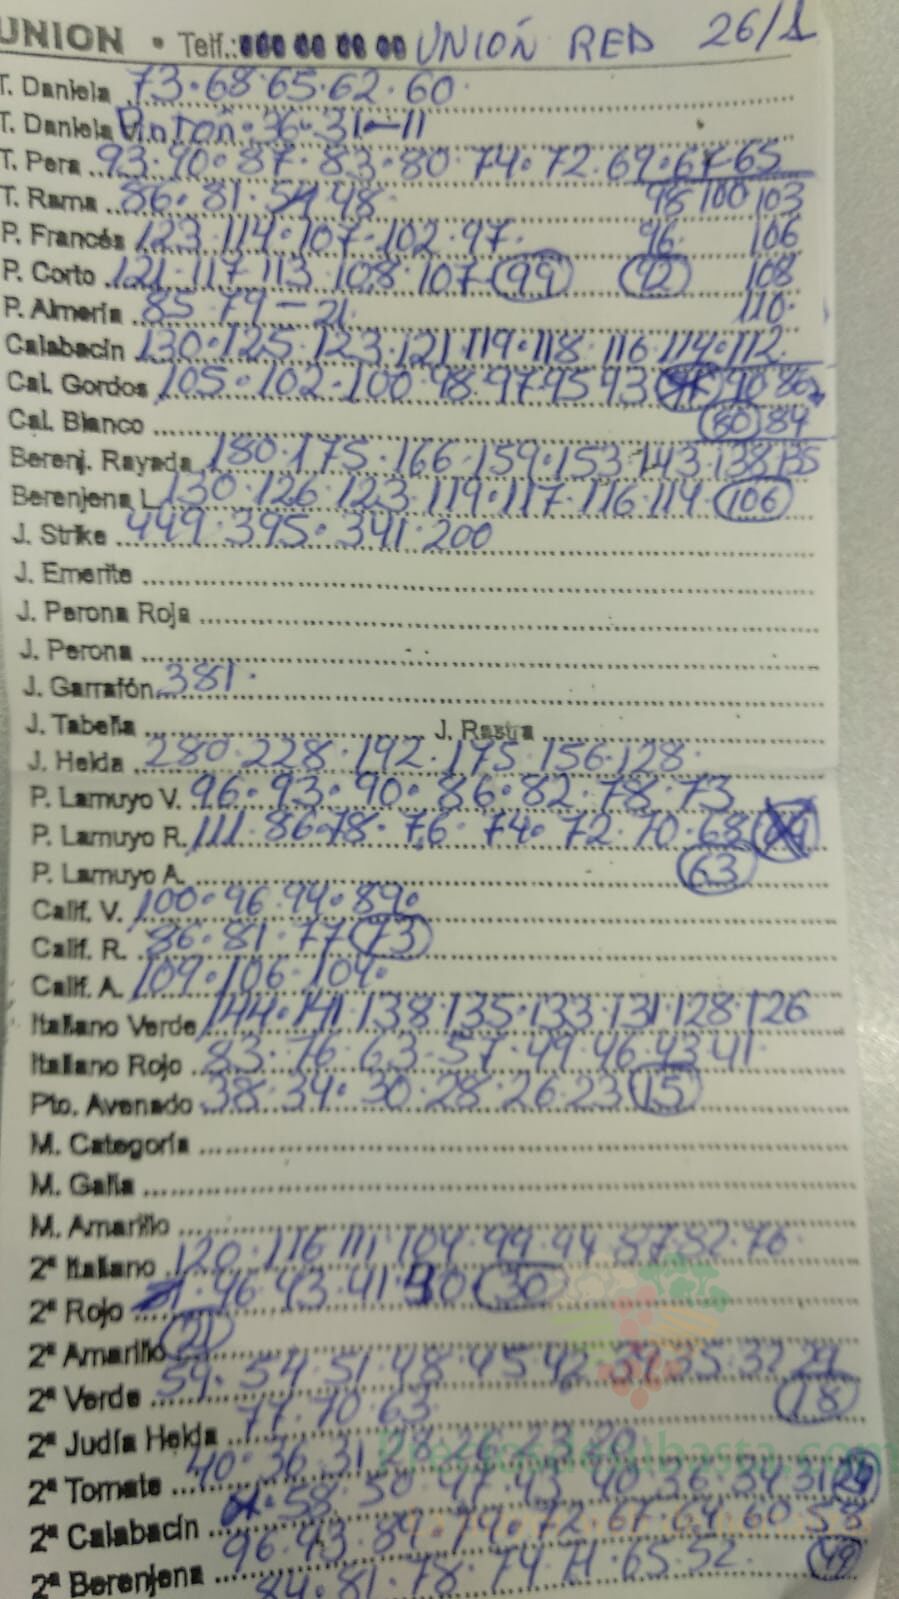 UNION • Telf.: UNIÓN RED 26/1
T. Daniela 73·68·65·62·60·
T. Daniela Pintón·36·31—11
T. Pera 93·90·87·83·80·74·72·69·67·65
T. Rama 86·81·54·48· 98 100 103
P. Francés 123·114·107·102·97· 96· 106
P. Corto 121·117·113·108·107·(99) (92) 108
P. Almería 85·79—21· 110·
Calabacín 130·125·123·121·119·118·116·114·112
Cal. Gordos 105·102·100·98·97·95·93 90·86
Cal. Blanco (80) 84
Berenj. Rayada 180·175·166·159·153·143·138·135
Berenjena L 130·126·123·119·117·116·114·(106)
J. Strike 449·395·341·200
J. Emerite
J. Perona Roja
J. Perona
J. Garrafón 381·
J. Tabella J. Rastra
J. Helda 280·228·192·175·156·128·
P. Lamuyo V. 96·93·90·86·82·78·73
P. Lamuyo R. 111·86·78·76·74·72·70·68
P. Lamuyo A. (63)
Calif. V. 100·96·94·89·
Calif. R. 86·81·77(73)
Calif. A. 109·106·104·
Italiano Verde 144·141·138·135·133·131·128·126
Italiano Rojo 83·76·63·57·49·46·43·41·
Pto. Avenado 38·34·30·28·26·23(15)
M. Categoría
M. Galia
M. Amarillo
2ª Italiano 120·116·111·104·99·94·87·82·76·
2ª Rojo 46·43·41·40(30)
2ª Amarillo (21)
2ª Verde 59·54·51·48·45·42·39·35·32·29 (18)
2ª Judía Helda 77·70·63·
2ª Tomate 40·36·31·28·26·23·20·
2ª Calabacín 58·50·47·43·40·36·34·31(29)
2ª Berenjena 96·93·89·79·72·67·64·60·58 (49)
84·81·78·74·71·65·52·
Preciosdesubasta.com